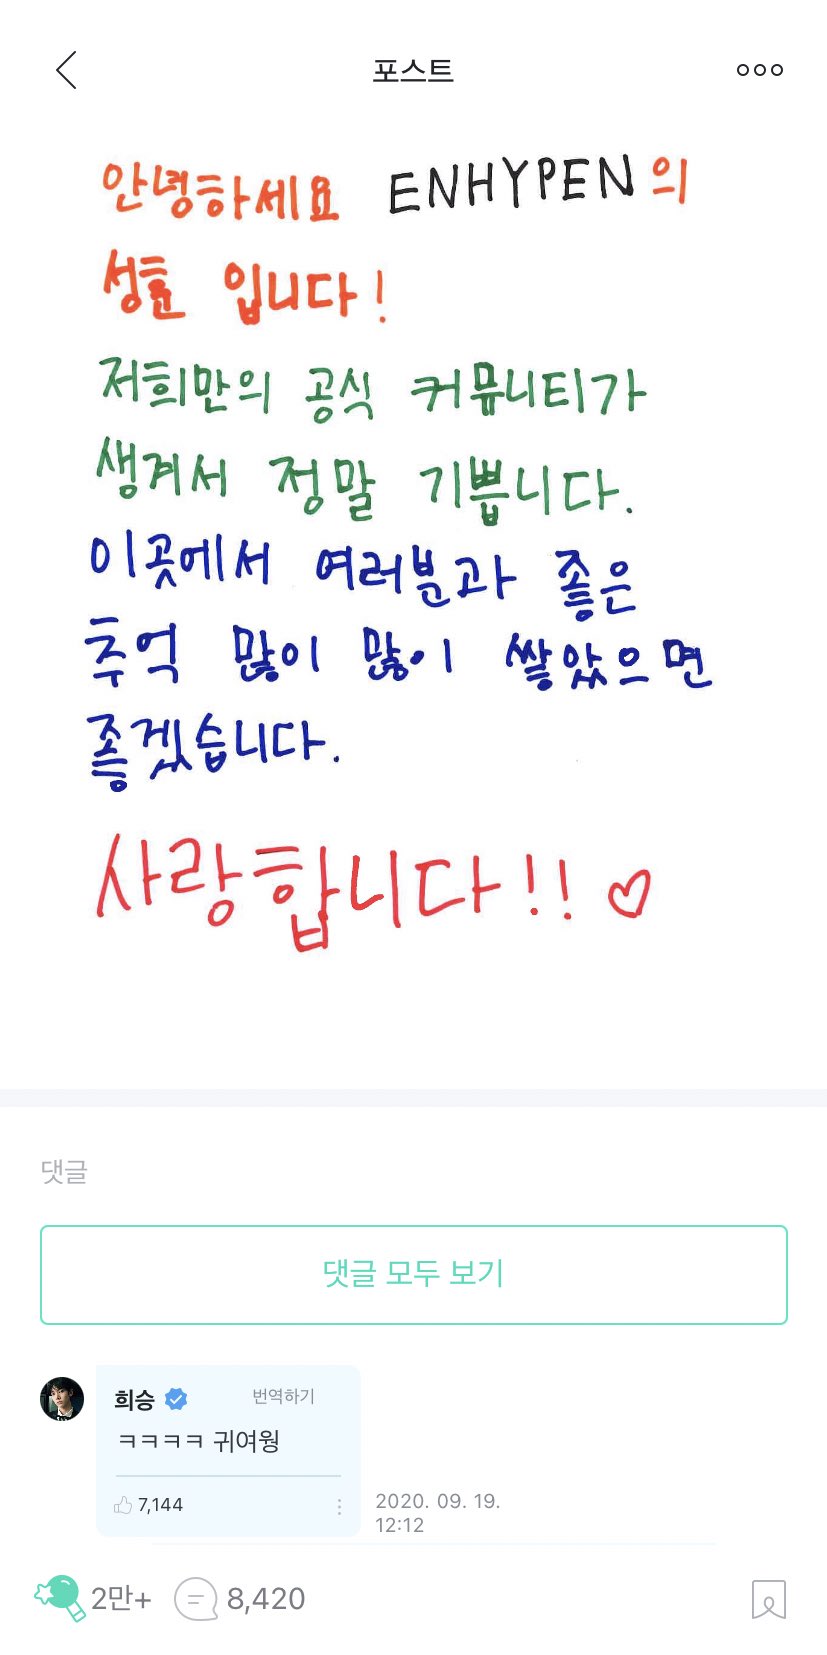 포스트
안녕하세요 ENHYPEN의
성훈 입니다!
저희만의 공식 커뮤니티가
생겨서 정말 기쁩니다.
이곳에서 여러분과 좋은
추억 많이 많이 쌓았으면
좋겠습니다.
사랑합니다!! ♡
댓글
댓글 모두 보기
희승 번역하기
ㅋㅋㅋㅋ 귀여웡
7,144
2020. 09. 19.
12:12
2만+ 8,420